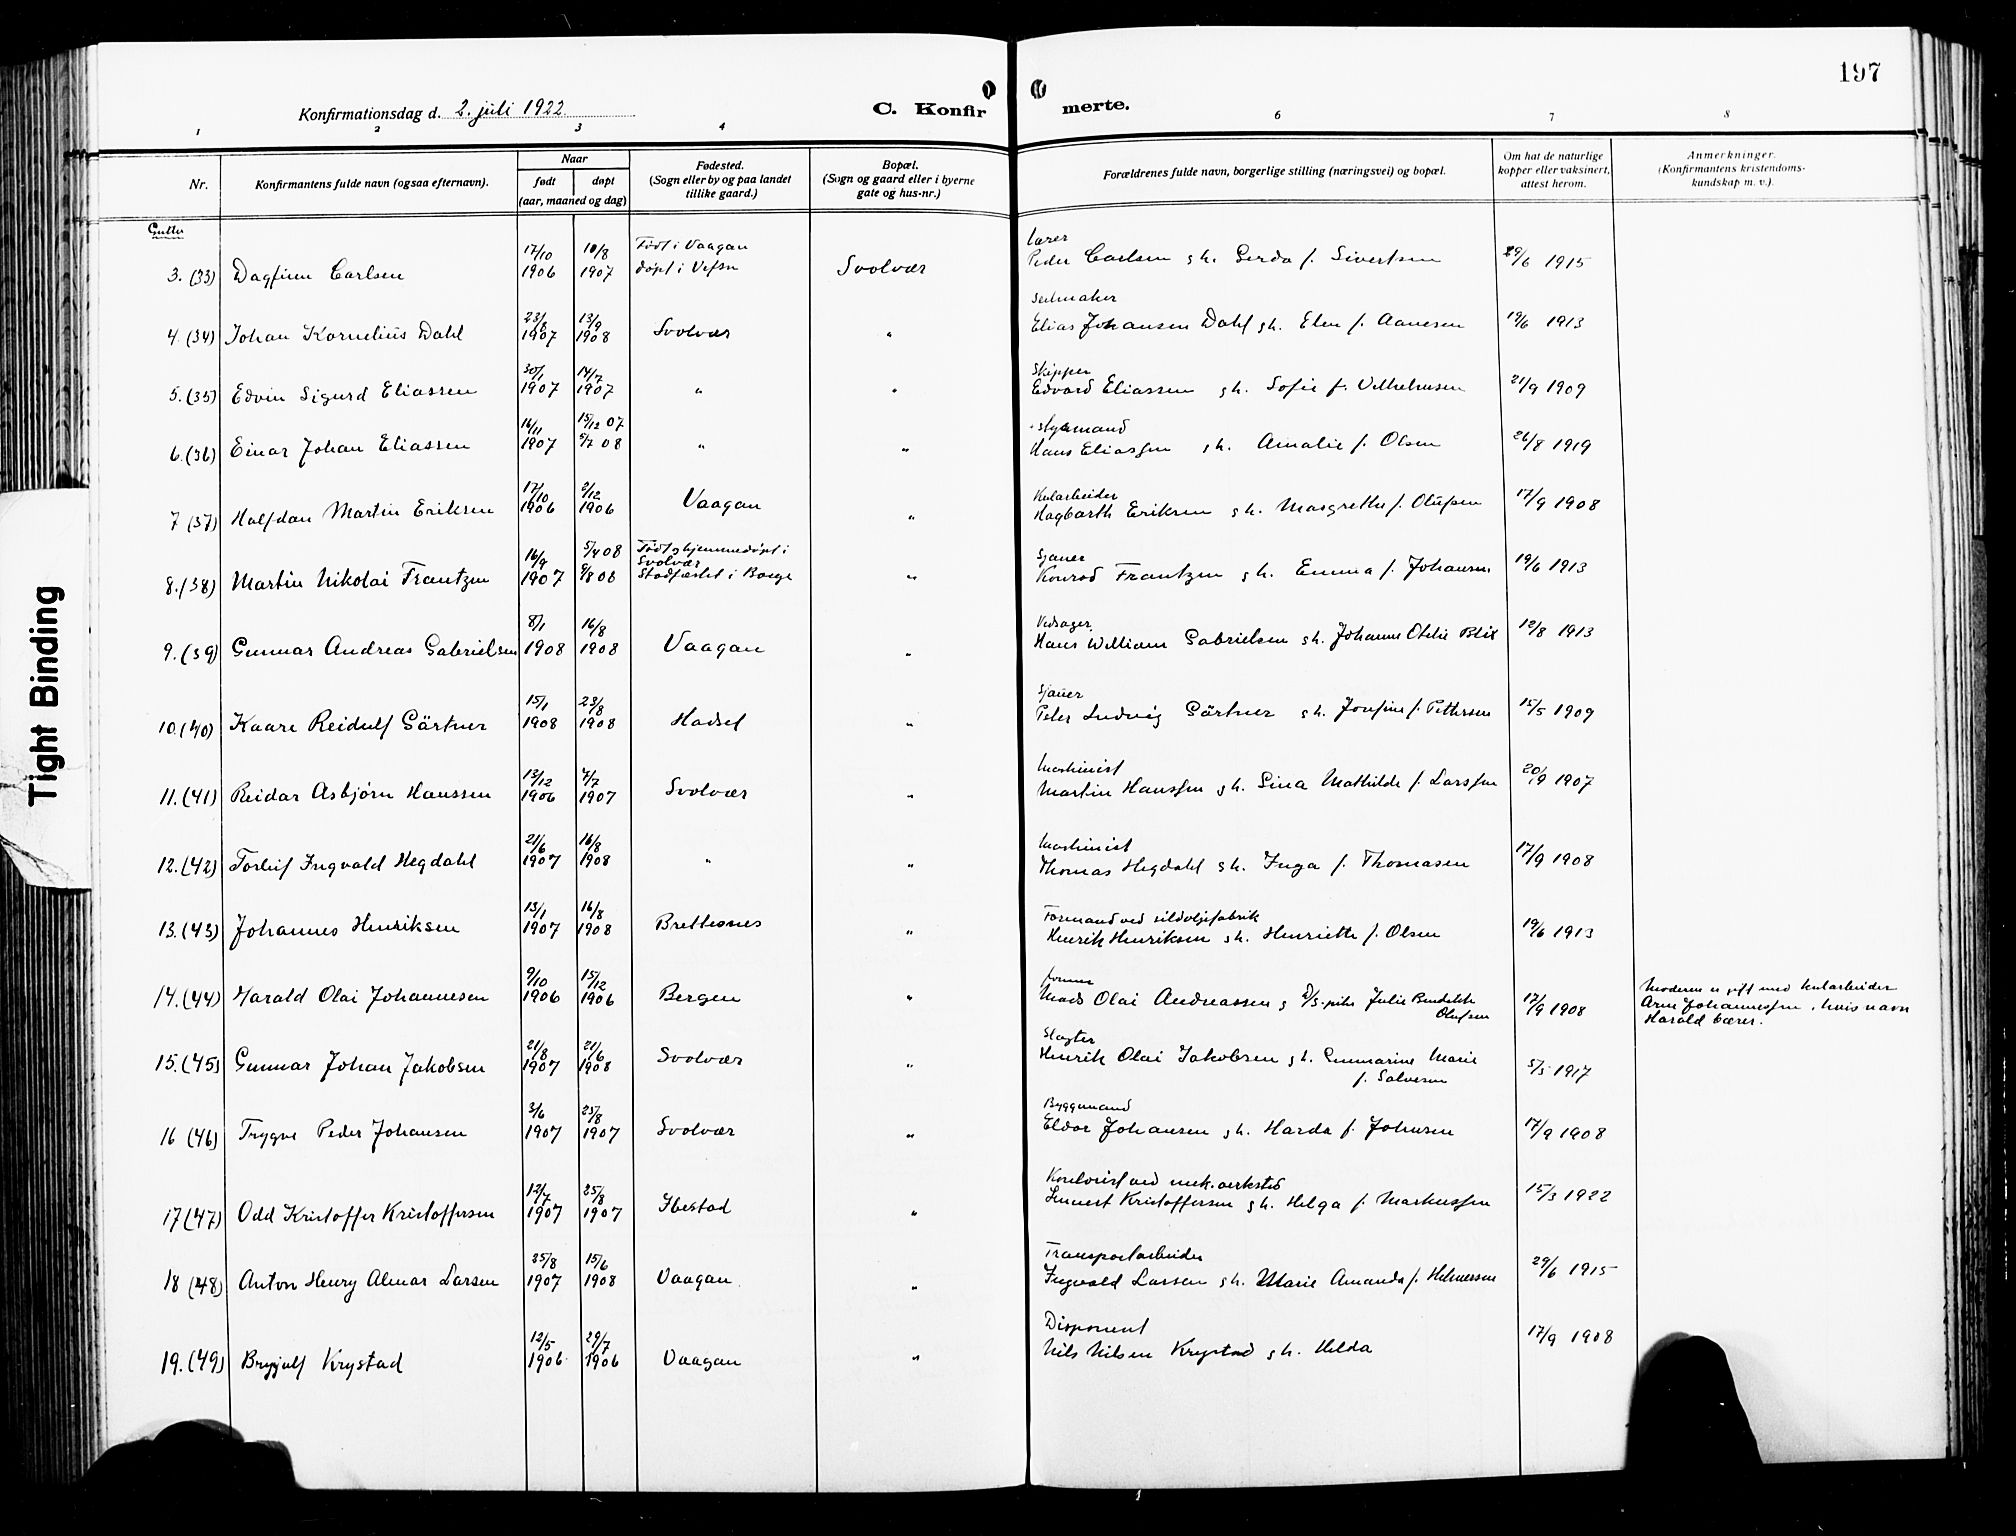 197
Konfirmationsdag d. 2. juli 1922. C. Konfir merte.
1 2 3 4 6 7 8
Nr. Konfirmantens fulde navn (ogsaa efternavn). Naar født døpt (aar, maaned og dag) Fødested. (Sogn eller by og paa landet tillike gaard.) Bopæl. (Sogn og gaard eller i byerne gate og hus-nr.) Forældrenes fulde navn, borgerlige stilling (næringsvei) og bopæl. Om hat de naturlige kopper eller vaksinert, attest herom. Anmerkninger. (Konfirmantens kristendoms-kundskap m. v.).
Gutter
3. (33) Dagfinn Carlsen 17/10 1906 10/8 1907 Født i Vaagan døpt i Vefsn Svolvær Lærer Peder Carlsen g h. Gerda f. Sivertsen 29/6 1915
4. (34) Johan Kornelius Dahl 23/8 1907 13/9 1908 Svolvær " Seilmaker Elias Johansen Dahl g h. Elen f. Aanesen 19/6 1913
5. (35) Edvin Sigurd Eliassen 30/1 1907 14/7 1907 " " Skipper Edvard Eliassen g h. Sofie f. Vilhelmsen 21/9 1909
6. (36) Einar Johan Eliassen 16/11 1907 15/12 07 5/7 08 " " Styrmand Hans Eliassen g h. Amalie f. Olsen 26/8 1919
7 (37) Halfdan Martin Eriksen 17/10 1906 2/12 1906 Vaagan " Kularbeider Hagbarth Eriksen g h. Margrethe f. Olufsen 17/9 1908
8. (38) Martin Nikolai Frantzen 16/9 1907 5/4 08 9/8 08 Født og hjemmedøpt i Svolvær Stadfæstet i Borge " Sjauer Konrad Frantzen g h. Emma f. Johansen 19/6 1913
9. (39) Gunnar Andreas Gabrielsen 8/1 1908 16/8 1908 Vaagan " Vedsager Hans William Gabrielsen g h. Johanne Otelie Blix 12/8 1913
10. (40) Kaare Reidulf Gärtner 15/1 1908 23/8 1908 Hadsel " Sjauer Peter Ludvig Gärtner g h. Josefine f. Pettersen 15/5 1909
11. (41) Reidar Asbjørn Hanssen 13/12 1906 7/7 1907 Svolvær " Maskinist Martin Hanssen g h. Lina Mathilde f. Larssen 20/9 1907
12. (42) Torleif Ingvald Hegdahl 21/6 1907 16/8 1908 " " Maskinist Thomas Hegdahl g h. Inga f. Thomasen 17/9 1908
13. (43) Johannes Henriksen 13/1 1907 16/8 1908 Brettesnes " Formand ved sildoljefabrik Henrik Henriksen g h. Henriette f. Olsen 19/6 1913
14. (44) Harald Olai Johannesen 9/10 1906 15/12 1906 Bergen " Mads Olai Andreassen g pike Julie Bendikte Olufsen 17/9 1908 Moderen er gift med kularbeider Arne Johannessen, hvis navn Harald bærer.
15. (45) Gunnar Johan Jakobsen 21/8 1907 21/6 1908 Svolvær " Slagter Henrik Olai Jakobsen g h. Gunnarine Marie f. Salvesen 5/5 1917
16 (46) Trygve Peder Johansen 3/6 1907 25/8 1907 Svolvær " Byggmand Eldor Johansen g h. Harda f. Johnsen 17/9 1908
17 (47) Odd Kristoffer Kristoffersen 12/7 1907 25/8 1907 Ibestad " ved mek. verksted Kristoffersen g h. Helga f. Markussen 15/3 1922
18 (48) Anton Henry Almar Larsen 25/8 1907 15/6 1908 Vaagan " Transportarbeider Ingvald Larsen g h. Marie Amanda f. Helmersen 29/6 1915
19. (49) Brynjulf Krystad 12/5 1906 29/7 1906 Vaagan " Disponent Nils Nilsen Krystad g h. Hilda 17/9 1908
Tight Binding